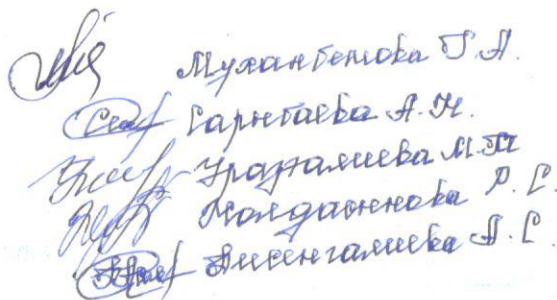 Мухамбетова Г.А.
Сарытаева А.Н.
Уразалиева М.Т.
Жолдасынова Р.С.
Бисенгалиева А.С.